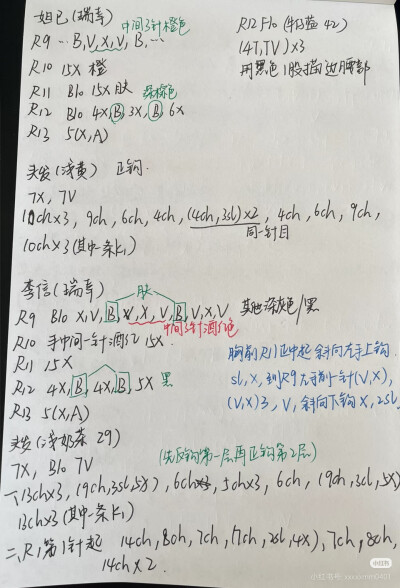 妲己(瑞寿) 中间3针橙色
R9 … B,V,X,V,B,…
R10 15X 橙
R11 Blo 15X 肤 深棕色
R12 Blo 4X,B,3X,B,6X
R13 5(X,A)
R12 Flo (牛仔蓝 42)
(4T,TV)×3
用黑色1股描边腰部
头发(浅黄) 正钩
7X, 7V
10ch×3, 9ch, 6ch, 4ch, (4ch,3sl)×2, 4ch, 6ch, 9ch,
同一针目
10ch×3(其中一条k1)
李信(瑞寿) 肤
R9 Blo X,V,B,X,X,V,B,V,X,V 其他深灰色/黑
中间3针酒红色
R10 手中间一针酒红 15X
R11 15X
R12 4X,B,4X,B,5X 黑
R13 5(X,A)
胸前R11正中起 斜向左手上钩
sl,X,到R9左手前一针(V,X),
(V,X)3, V, 斜向下钩X,2sl
头发(浅奶茶 29)
7X, Blo 7V (先反钩第一层再正钩第2层)
一、13ch×3, (9ch,3sl,5X), 6ch, 5ch×3, 6ch, (9ch,3sl,5X)
13ch×3(其中一条k1)
二、R1第1针起 14ch, 8ch, 7ch, (7ch,2sl,4X), 7ch, 8ch,
14ch×2
小红书